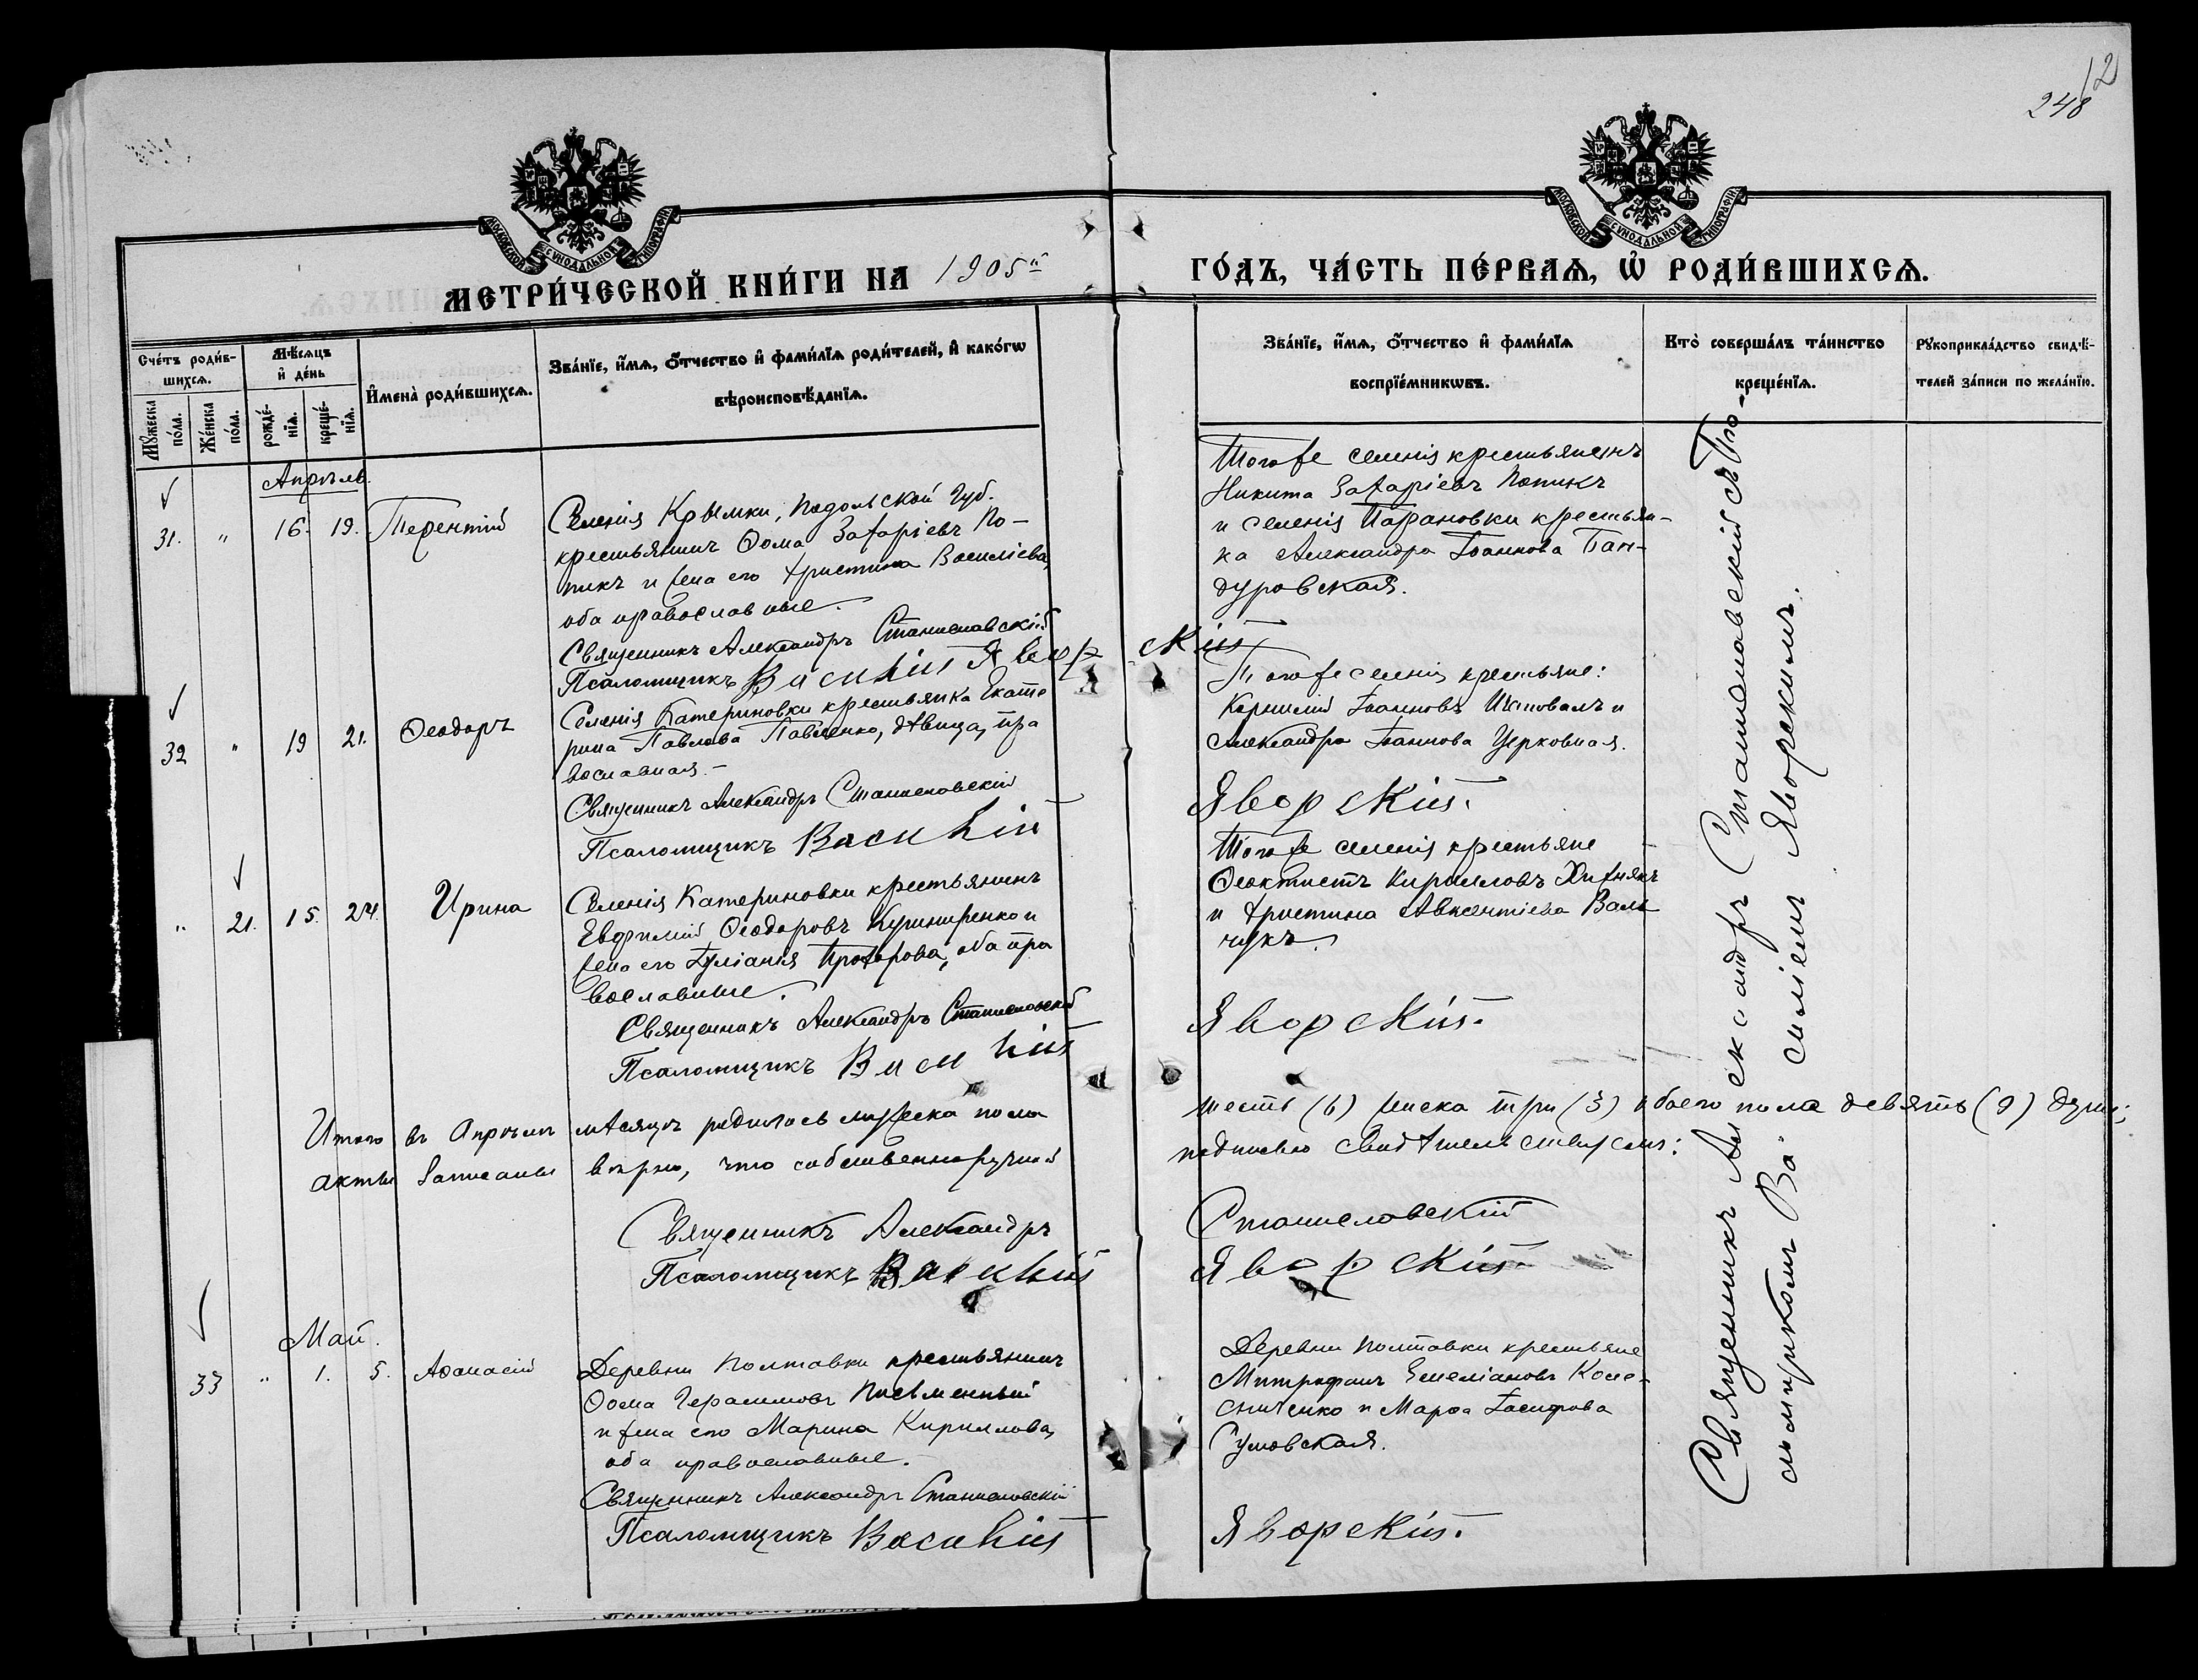 12
248
МОСКОВСКОЙ СѴНОДАЛЬНОЙ ТИПОГРАФІИ
МОСКОВСКОЙ СѴНОДАЛЬНОЙ ТИПОГРАФІИ
МЕТРИ́ЧЕСКОЙ КНИ́ГИ НА 1905й
ГО́ДЪ, ЧА́СТЬ ПЕ́РВАѦ, Ѡ҆ РОДИ́ВШИХСѦ.
Сче́тъ роди́в-
шихсѧ.
Мꙋ́жеска по́ла.
Же́нска по́ла.
Мѣ́сѧцъ
и҆ де́нь
рожде́-нїѧ.
креще́-нїѧ.
И҆мена̀ роди́вшихсѧ.
Зва́нїе, и҆́мѧ, ѻ҆́тчество и҆ фами́лїѧ роди́телей, и҆ како́гѡ
вѣроисповѣ́данїѧ.
Зва́нїе, и҆́мѧ, ѻ҆́тчество и҆ фами́лїѧ
воспрїе́мникѡвъ.
Кто̀ соверша́лъ та́инство
креще́нїѧ.
Рꙋкоприкла́дство свидѣ́-
телей за́писи по жела́нїю.
Апрѣль.
31. " 16. 19. Терентій
Селенія Крымки, Подольской Губ.
крестьянинъ Ѳома Захаріевъ По-
пикъ и жена его Христина Василіева,
оба православные.
Священникъ Александръ Станиславскій
Псаломщикъ Василій Яворскій
Тогоже селенія крестьянинъ
Никита Захаріевъ Попикъ
и селенія Тарановки крестьян-
ка Александра Іоаннова Бан-
дуровская.
32 " 19 21. Ѳеодоръ
Селенія Катериновки крестьянка Екате
рина Павлова Павленко, дѣвица, пра
вославная.-
Священникъ Александръ Станиславскій
Псаломщикъ Василій
Тогоже селенія крестьяне:
Корнилій Іоанновъ и
Александра Іоаннова Церковная.
Яворскій.
" 21. 15. 24. Ирина
Селенія Катериновки крестьянинъ
Евфимій Ѳеодоровъ Кушниренко и
жена его Іуліанія Прохорова, оба пра
вославные.
Священникъ Александръ Станиславскій
Псаломщикъ Василій
Тогоже селенія крестьяне
Ѳеоктистъ Кирилловъ Хижнякъ
и Христина Авксентіева Валь
чукъ.
Яворскій.
Итого въ Апрѣлѣ мѣсяцѣ родилось мужеска пола шесть (6) женска три (3) обоего пола девять (9) душъ;
акты записаны вѣрно, что собственноручной подписью свидѣтельствуемъ:
Священникъ Александръ Станиславскій
Псаломщикъ Василій Яворскій
Май.
33 " 1. 5. Аѳанасій
Деревни Полтавки крестьянинъ
Ѳома Герасимовъ Письменный
и жена его Марина Кириллова,
оба православные.
Священникъ Александръ Станиславскій
Псаломщикъ Василій
Деревни Полтавки крестьяне
Митрофанъ Емеліановъ Коле-
сниченко и Марѳа Іосифова
Сумовская.
Яворскій.
Священникъ Александръ Станиславскій съ Пса-
ломщикомъ Василіемъ Яворскимъ.